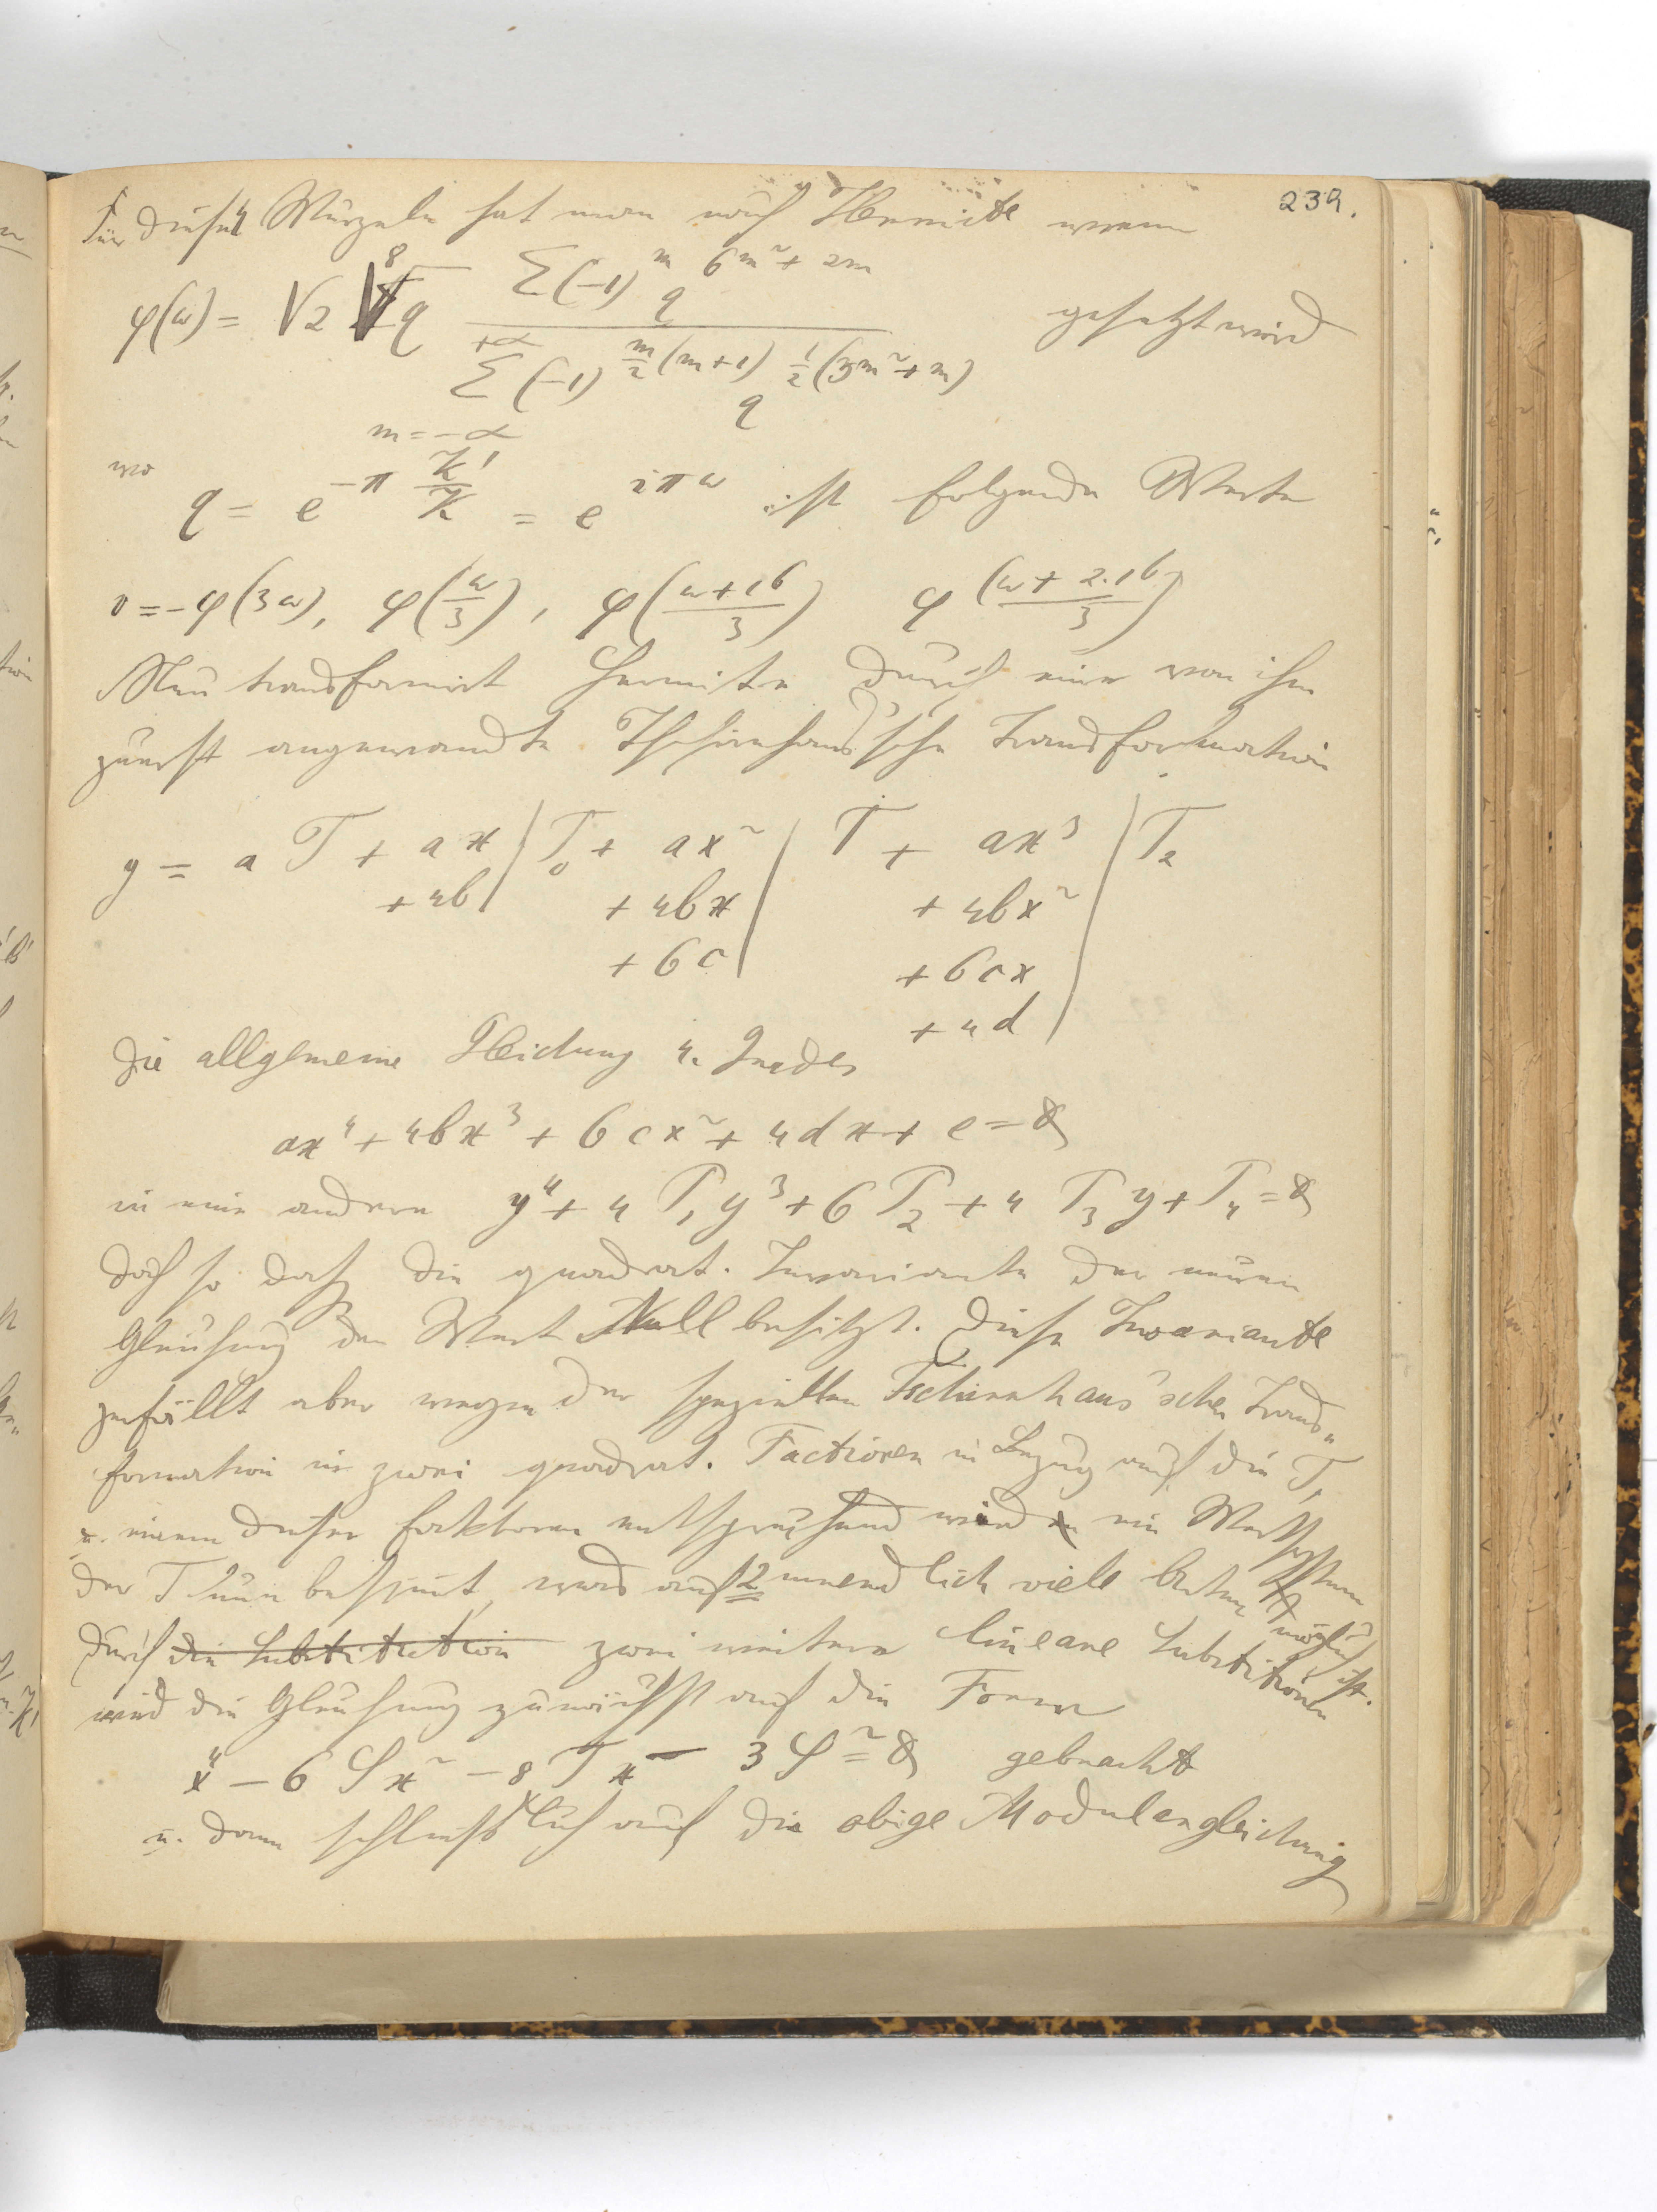 239.
Für diese 4 Wurzeln hat man nach Hermite wenn
φ(ω) = √2 ⁸√q Σ(-1)^m q^(6m²+2m) / Σ(-1)^(m/2 (m+1)) q^(1/2 (3m²+m)) gesetzt wird
+∞
m = -∞
wo q = e^(-π K'/K) = e^(iπω) ist folgende Werte
v = -φ(3ω), φ(ω/3), φ((ω+16)/3) φ((ω+2.16)/3)
Nun transformirt Hermite durch eine von ihm
zuerst angewandte Tschirnhaus'sche Transformation
y = a T + ax | T₀ + ax² | T + ax³ | T₂
+4b | + 4bx | + 4bx²
+ 6c | + 6cx
+ 4d |
die allgemeine Gleichung 4. Grades
ax⁴ + 4bx³ + 6cx² + 4dx + e = 0
in eine andere y⁴ + 4 T₁ y³ + 6 T₂ + 4 T₃ y + T₄ = 0
doch so daß die quadrat. Invariante der neuen
Gleichung den Wert Null besitzt. Diese Invariante
zerfällt aber wegen der speziellen Tschirnhaus'schen Trans„
formation in zwei quadrat. Factioren in Bezug auf die T,
u. einem dieser Faktoren entsprechend wird ein Wertsystem
der T nun bestimt, was auf 2 unendlich viele Arten möglich ist.
Durch die Substitution zwei weitere lineare Substitutionen
wird die Gleichung zunächst auf die Form
x⁴ - 6 S x² - 8 T x - 3 S² = 0 gebracht
u. dann schließlich auf die obige Modulargleichung